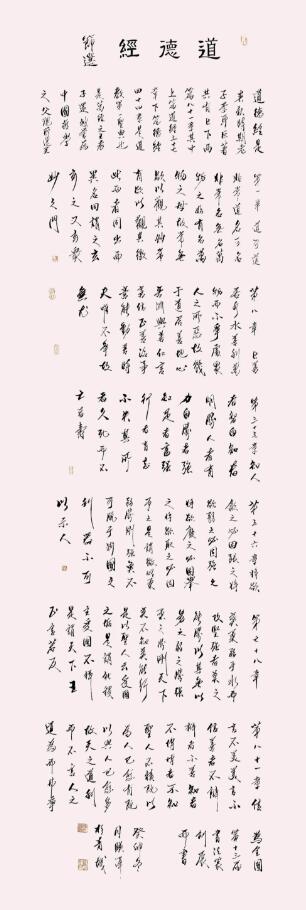 道德經
節選
道德經是
春秋時期老
子李耳巨著
共有上下兩
篇八十一章其中
上篇道經三十七
章下篇德經
四十四章是道
教第一聖典也
是萬經之王老
子還被譽為
中國哲學
之父現節選
第一章 道可道
非常道名可名
非常名無名萬
物之始有名萬
物之母故常無
欲以觀其妙常
有欲以觀其徼
此兩者同出而
異名同謂之玄
玄之又玄衆
妙之門
第八章 上善
若水水善利萬
物而不爭處衆
人之所惡故幾
于道居善地心
善淵與善仁言
善信正善治事
善能動善時
夫唯不爭故
無尤
第三十三章知人
者智自知者
明勝人者有
力自勝者強
知足者富強
行者有志
不失其所
者久死而不
亡者壽
第三十六章將欲
歙之必固張之將
欲弱之必固強之
將欲廢之必固舉
之將欲取之必固
與之是謂微明柔
弱勝剛強魚不
可脫于淵國之
利器不可
以示人
第七十八章
莫柔弱乎水而
攻堅強者莫之
能勝以其無以
易之弱之勝強
柔之勝剛天下
莫不知莫能行
是以聖人云受國
之垢是謂社稷
主受國不祥
是謂天下王
正言若反
第八十一章 信
言不美美言不
信善者不辯
辯者不善知者
不博博者不知
聖人不積既以
為人己愈有既
以與人己愈多
故天之道利
而不害人之
道為而弗爭
為全國
第十三屆
書法篆
刻展
而書
癸卯冬